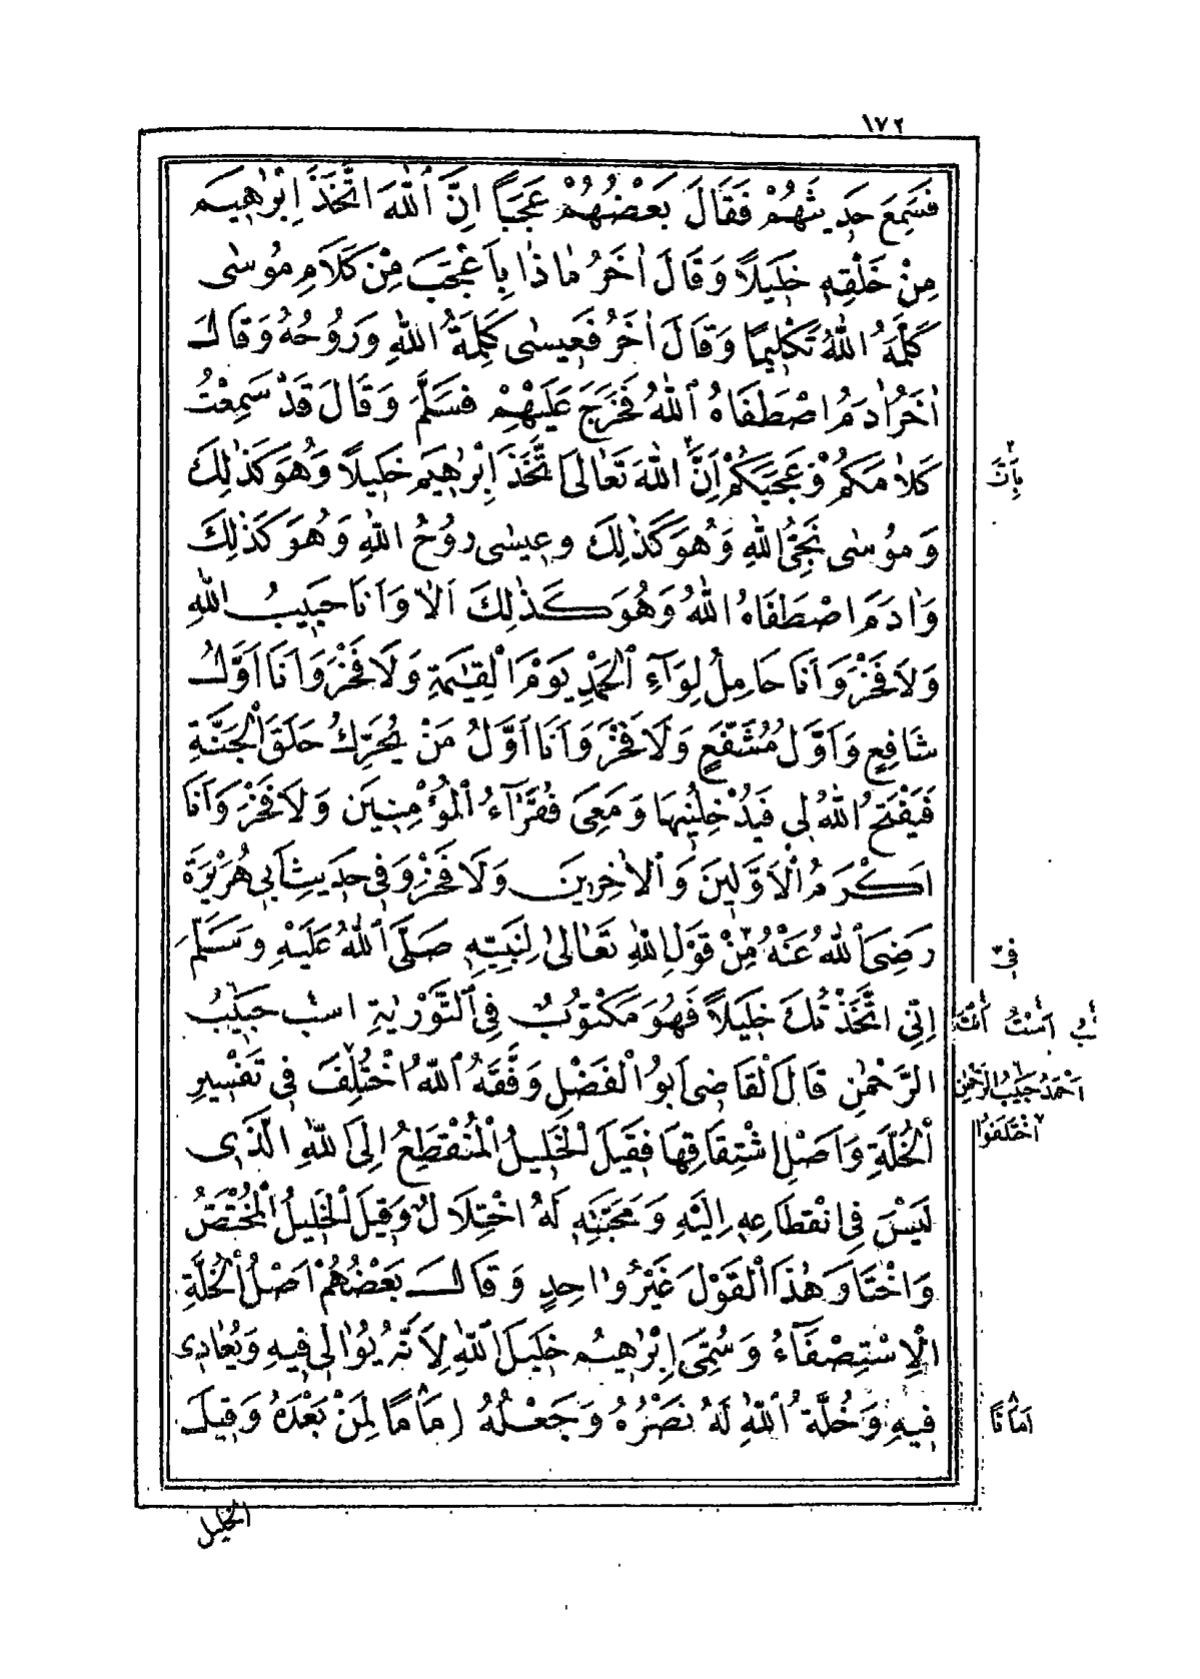 ١٧٢
فَسَمِعَ حَدِيثَهُمْ فَقَالَ بَعْضُهُمْ عَجَبًا اِنَّ اللّٰهَ اتَّخَذَ اِبْرٰهِيمَ
مِنْ خَلْقِهِ خَلِيلًا وَقَالَ اٰخَرُ مَاذَا بِاَعْجَبَ مِنْ كَلَامِ مُوسٰى
كَلَّمَهُ اللّٰهُ تَكْلِيمًا وَقَالَ اٰخَرُ فَعِيسٰى كَلِمَةُ اللّٰهِ وَرُوحُهُ وَقَالَ
اٰخَرُ اٰدَمُ اصْطَفَاهُ اللّٰهُ فَخَرَجَ عَلَيْهِمْ فَسَلَّمَ وَقَالَ قَدْ سَمِعْتُ
كَلَامَكُمْ وَعَجَبَكُمْ اِنَّ اللّٰهَ تَعَالٰى اتَّخَذَ اِبْرٰهِيمَ خَلِيلًا وَهُوَ كَذٰلِكَ
بِاَنَّ
وَمُوسٰى نَجِيُّ اللّٰهِ وَهُوَ كَذٰلِكَ وَعِيسٰى رُوحُ اللّٰهِ وَهُوَ كَذٰلِكَ
وَاٰدَمُ اصْطَفَاهُ اللّٰهُ وَهُوَ كَذٰلِكَ اَلَا وَاَنَا حَبِيبُ اللّٰهِ
وَلَا فَخْرَ وَاَنَا حَامِلُ لِوَاءِ الْحَمْدِ يَوْمَ الْقِيٰمَةِ وَلَا فَخْرَ وَاَنَا اَوَّلُ
شَافِعٍ وَاَوَّلُ مُشَفَّعٍ وَلَا فَخْرَ وَاَنَا اَوَّلُ مَنْ يُحَرِّكُ حَلَقَ الْجَنَّةِ
فَيَفْتَحُ اللّٰهُ لِي فَيُدْخِلُنِيهَا وَمَعِيَ فُقَرَاءُ الْمُؤْمِنِينَ وَلَا فَخْرَ وَاَنَا
اَكْرَمُ الْاَوَّلِينَ وَالْاٰخِرِينَ وَلَا فَخْرَ وَفِي حَدِيثِ اَبِي هُرَيْرَةَ
رَضِيَ اللّٰهُ عَنْهُ مِنْ قَوْلِ اللّٰهِ تَعَالٰى لِنَبِيِّهِ صَلَّى اللّٰهُ عَلَيْهِ وَسَلَّمَ
فِي
اِنِّي اتَّخَذْتُكَ خَلِيلًا فَهُوَ مَكْتُوبٌ فِي التَّوْرٰيةِ اسب حَبِيبُ
اَنْتَ
الرَّحْمٰنِ قَالَ الْقَاضِي اَبُو الْفَضْلِ وَفَّقَهُ اللّٰهُ اخْتُلِفَ فِي تَفْسِيرِ
اَحْمَدُ حَبِيبُ الرَّحْمٰنِ
اخْتَلَفُوا
الْخُلَّةِ وَاَصْلِ اشْتِقَاقِهَا فَقِيلَ الْخَلِيلُ الْمُنْقَطِعُ اِلَى اللّٰهِ الَّذِي
لَيْسَ فِي انْقِطَاعِهِ اِلَيْهِ وَمَحَبَّتِهِ لَهُ اخْتِلَالٌ وَقِيلَ الْخَلِيلُ الْمُخْتَصُّ
وَاخْتَارَ هٰذَا الْقَوْلَ غَيْرُ وَاحِدٍ وَقَالَ بَعْضُهُمْ اَصْلُ الْخُلَّةِ
الْاِسْتِصْفَاءُ وَسُمِّيَ اِبْرٰهِيمُ خَلِيلَ اللّٰهِ لِاَنَّهُ يُوَالِي فِيهِ وَيُعَادِي
فِيهِ وَخُلَّةُ اللّٰهِ لَهُ نَصْرُهُ وَجَعْلُهُ اِمَامًا لِمَنْ بَعْدَهُ وَقِيلَ
اَمَانًا
الخليل